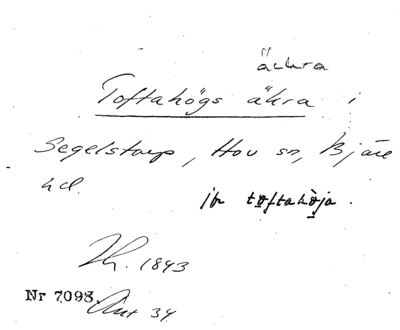 äckra
Toftahögs åkra i
Segelstorp, Hov sn, Bjäre
hd. jr toftahöja.
1843
Nr 7098. Ant 34